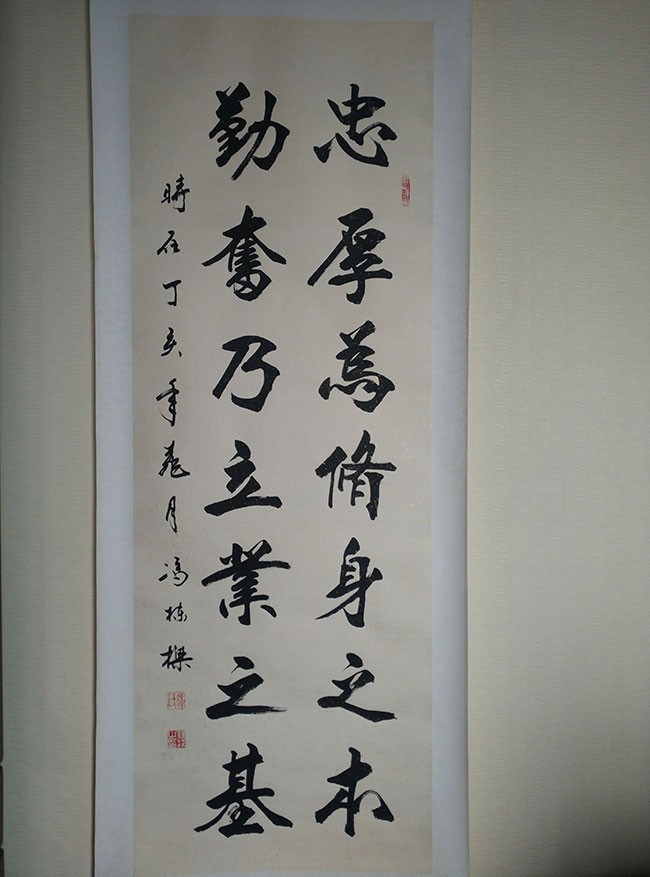 忠厚為脩身之本
勤奮乃立業之基
時在丁亥年菊月馮栋樑